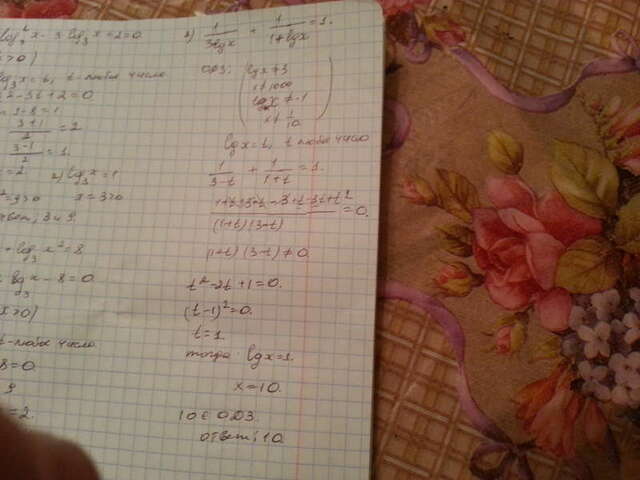 log₃² x - 3 log₃ x + 2 = 0.
x > 0)
log₃ x = t, t - любое число
t² - 3t + 2 = 0
3+1/2 = 2
3-1/2 = 1.
= 2. 2) log₃ x = 1
x = 3 > 0
ответ, 3 и 9.
+ log₃ x² = 8
log₃ x - 8 = 0.
x > 0)
t - любое число
8 = 0.
9
= 2.
2) 1/(3-lgx) + 1/(1+lgx) = 1.
ОДЗ: lgx ≠ 3
x ≠ 1000
lgx ≠ -1
x ≠ 1/10
lgx = t, t любое число
1/(3-t) + 1/(1+t) = 1.
(1+t+3-t-3+t-3t+t²)/((1+t)(3-t)) = 0.
(1+t)(3-t) ≠ 0
t² - 2t + 1 = 0.
(t-1)² = 0.
t = 1.
тогда lgx = 1.
x = 10.
10 ∈ ОДЗ.
ответ; 10